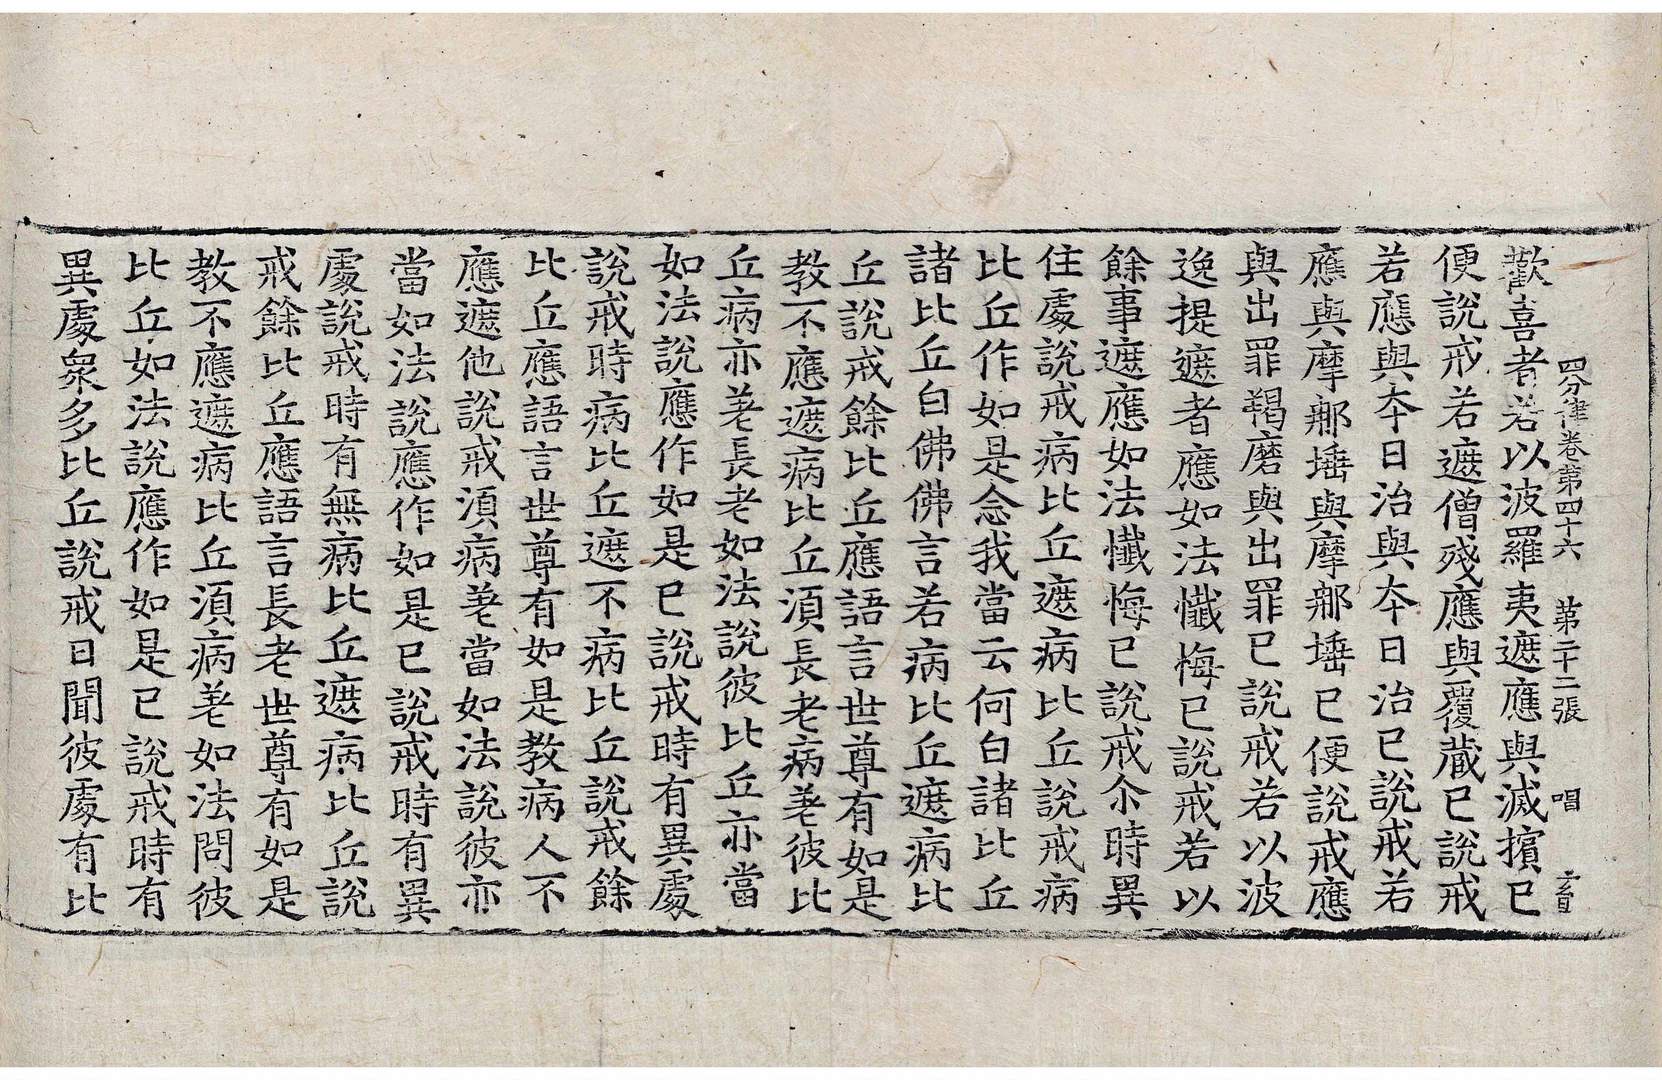 四分律卷第四十六 第二十二張 唱
歡喜者若以波羅夷遮應與滅擯已
便說戒若遮僧殘應與覆藏已說戒
若應與夲日治與夲日治已說戒若
應與摩那埵與摩那埵已便說戒應
與出罪羯磨與出罪已說戒若以波
逸提遮者應如法懺悔已說戒若以
餘事遮應如法懺悔已說戒尒時異
住處說戒病比丘遮病比丘說戒病
比丘作如是念我當云何白諸比丘
諸比丘白佛佛言若病比丘遮病比
丘說戒餘比丘應語言世尊有如是
教不應遮病比丘湏長老病差彼比
丘病亦差長老如法說彼比丘亦當
如法說應作如是已說戒時有異處
說戒時病比丘遮不病比丘說戒餘
比丘應語言世尊有如是教病人不
應遮他說戒湏病差當如法說彼亦
當如法說應作如是已說戒時有異
處說戒時有無病比丘遮病比丘說
戒餘比丘應語言長老世尊有如是
教不應遮病比丘湏病差如法問彼
比丘如法說應作如是已說戒時有
異處衆多比丘說戒日聞彼處有比